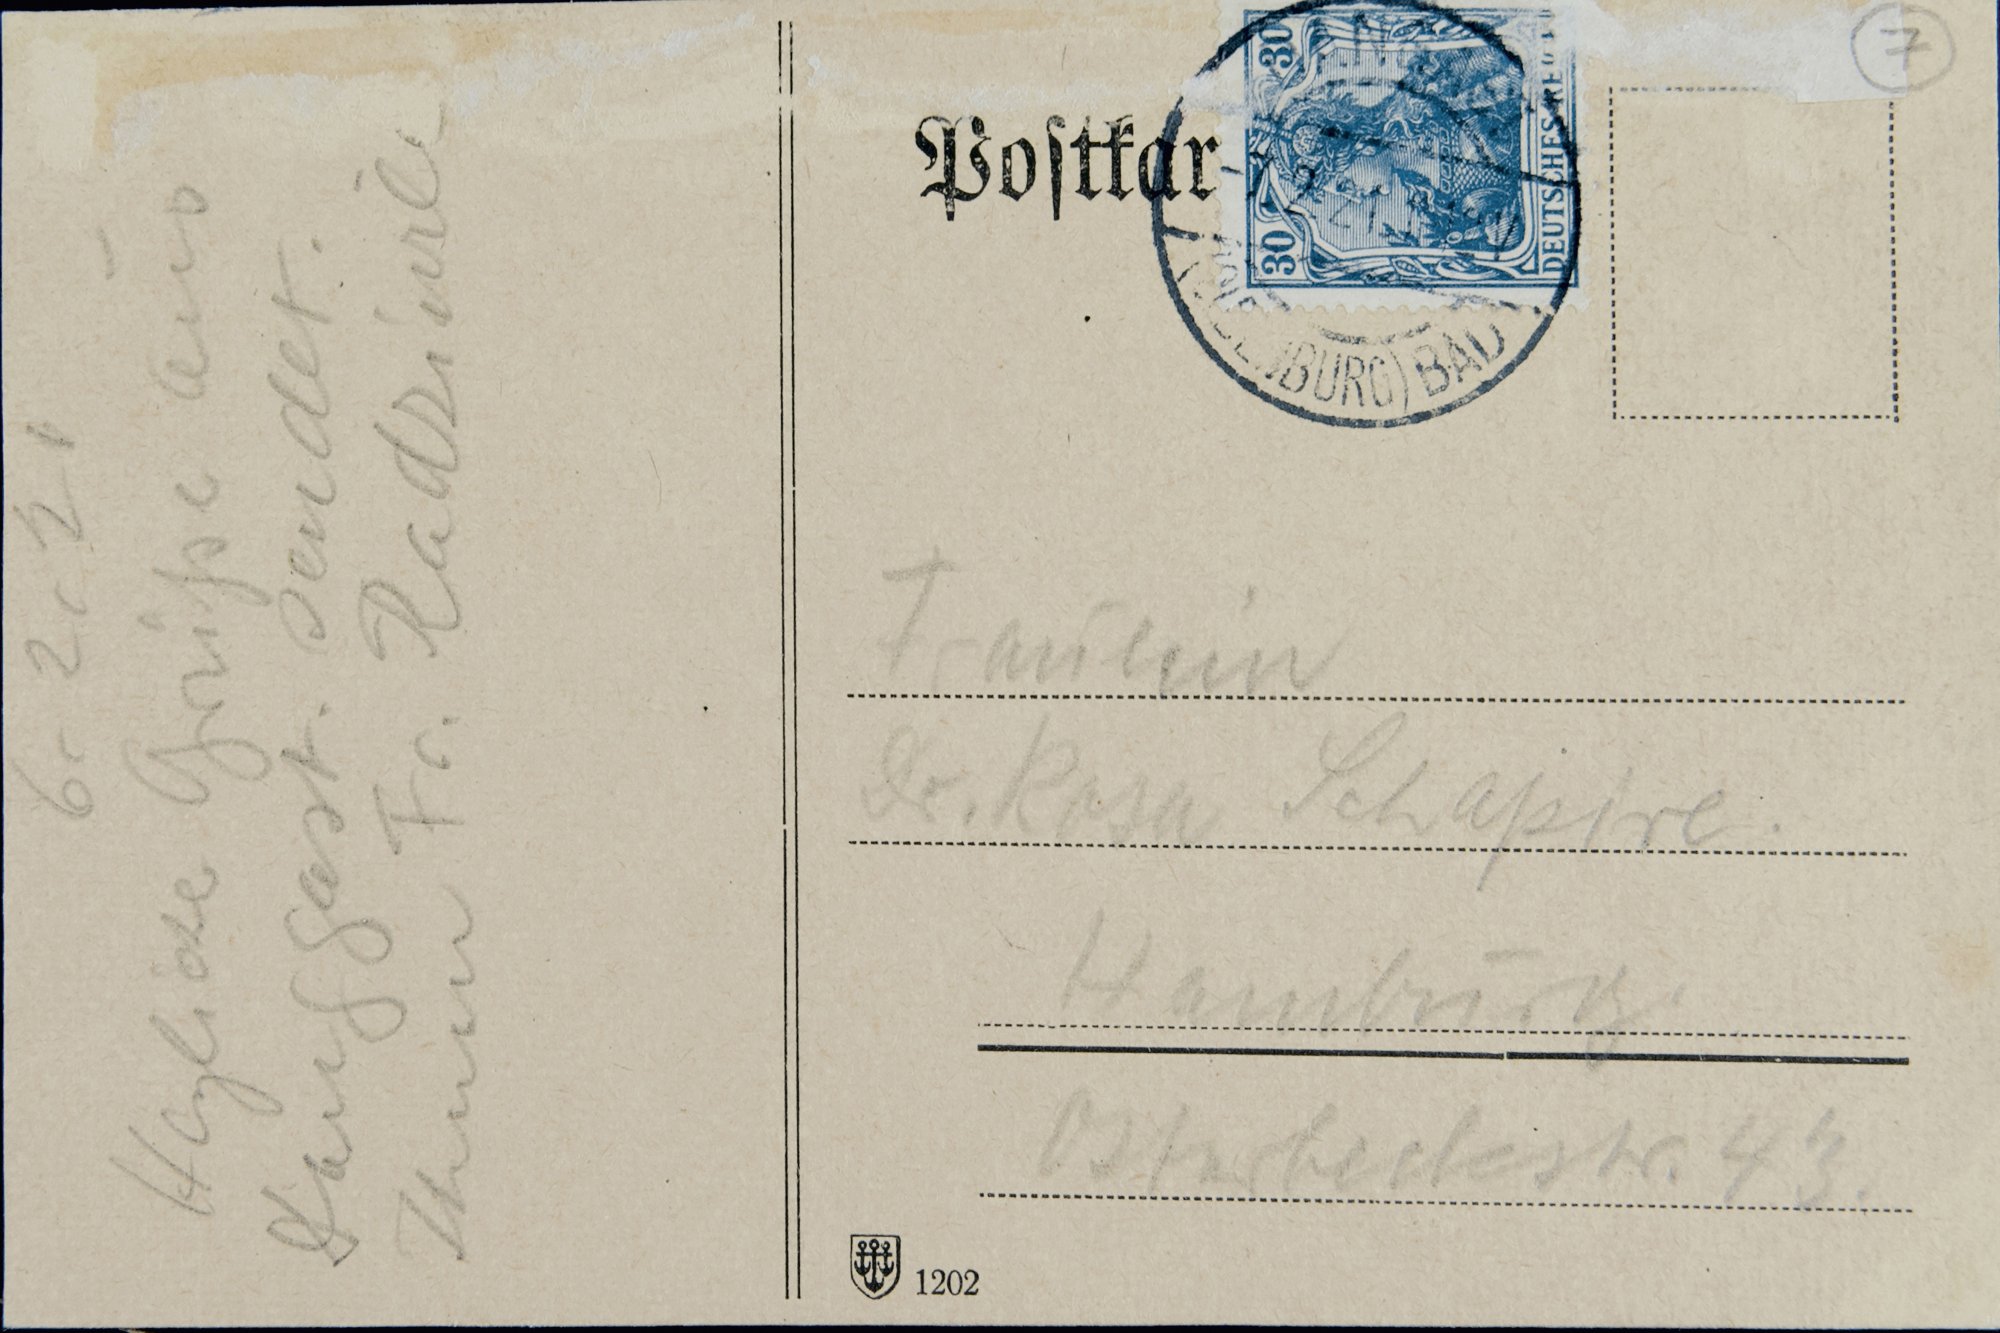 6. 2. 21
Herzliche Grüße aus
Dangast. sendet.
Ihnen Fr. Radziwill
Postkar
30
30
DEUTSCHES REICH
(OLDENBURG) BAD
7
Fräulein
Dr. Rosa Schapire.
Hamburg.
Osterbekstr. 43.
1202